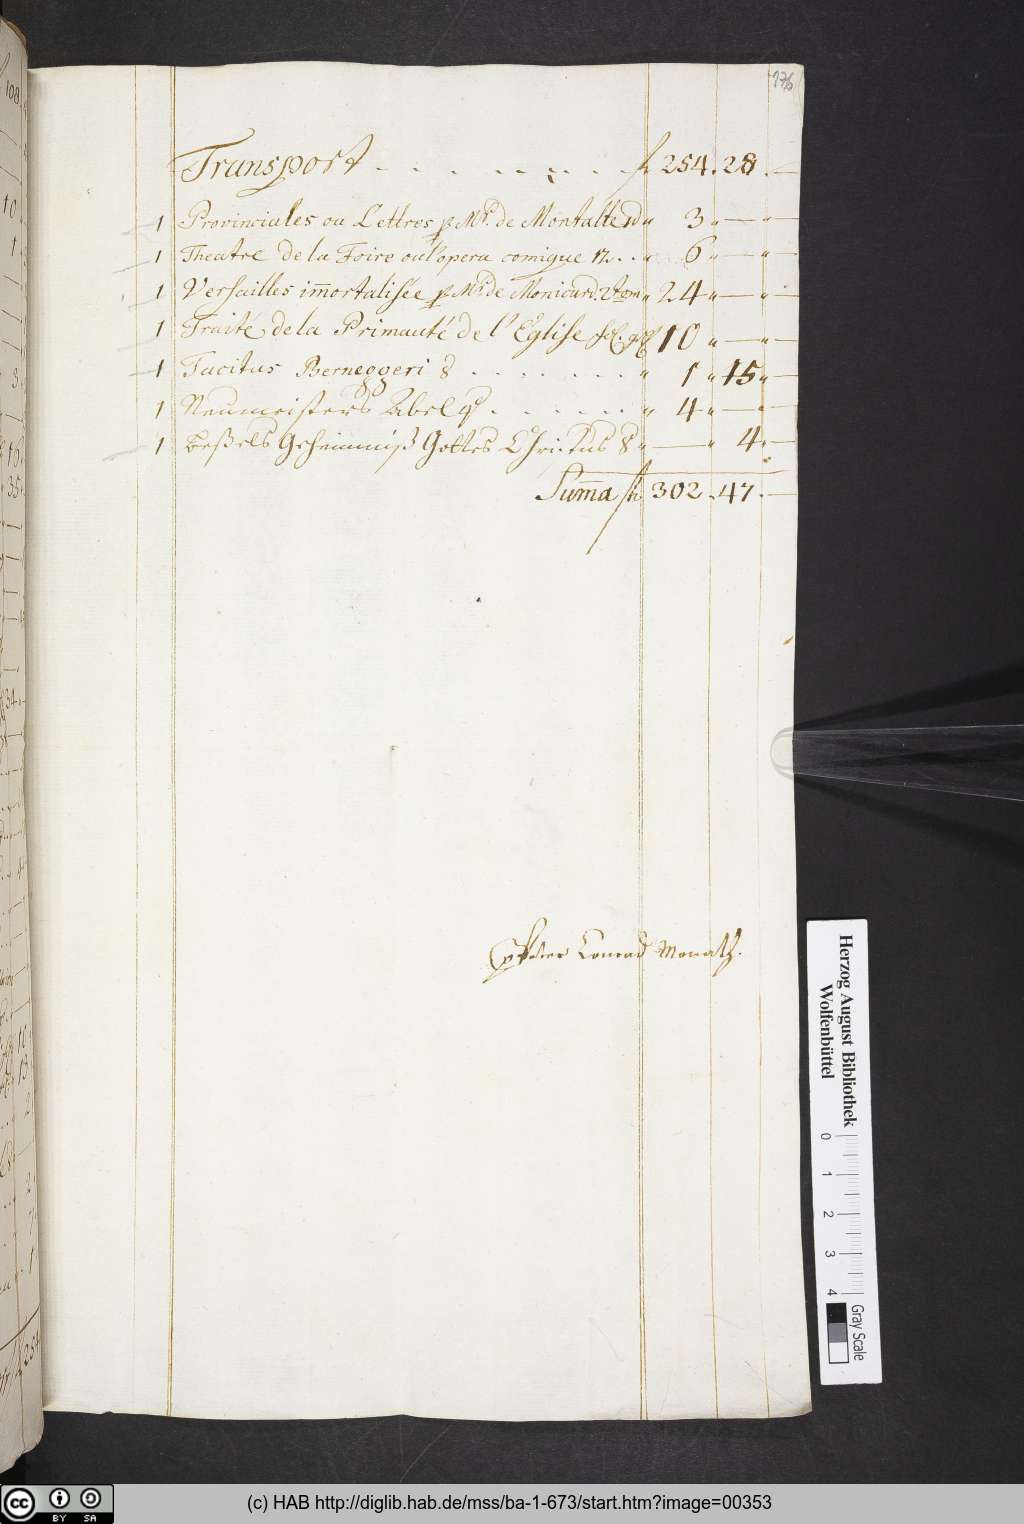 176
Transport . . . . . . . . f 254. 28. —
1 Provinciales ou Lettres p Mr. de Montalte " 3 " — "
1 Theatre de la Foire ou l'opera comique 12. . . " 6 " — "
1 Versailles im̄ortalisée p Mr. de Monicard. 2 tom " 24 " — "
1 Traité de la Primauté de l'Eglise 10 " — "
1 Tacitus Berneggeri 8 . . . . . . . . " 1 " 15 "
1 Neumeisters Abel . . . . . . " 4 " — "
1 Beßels Geheimniß Gottes Christus 8 " — " 4 "
Sum̄a f 302. 47. —
Peter Conrad Monath.
Herzog August Bibliothek
Wolfenbüttel
0 1 2 3 4
Gray Scale
(c) HAB http://diglib.hab.de/mss/ba-1-673/start.htm?image=00353
cc BY SA